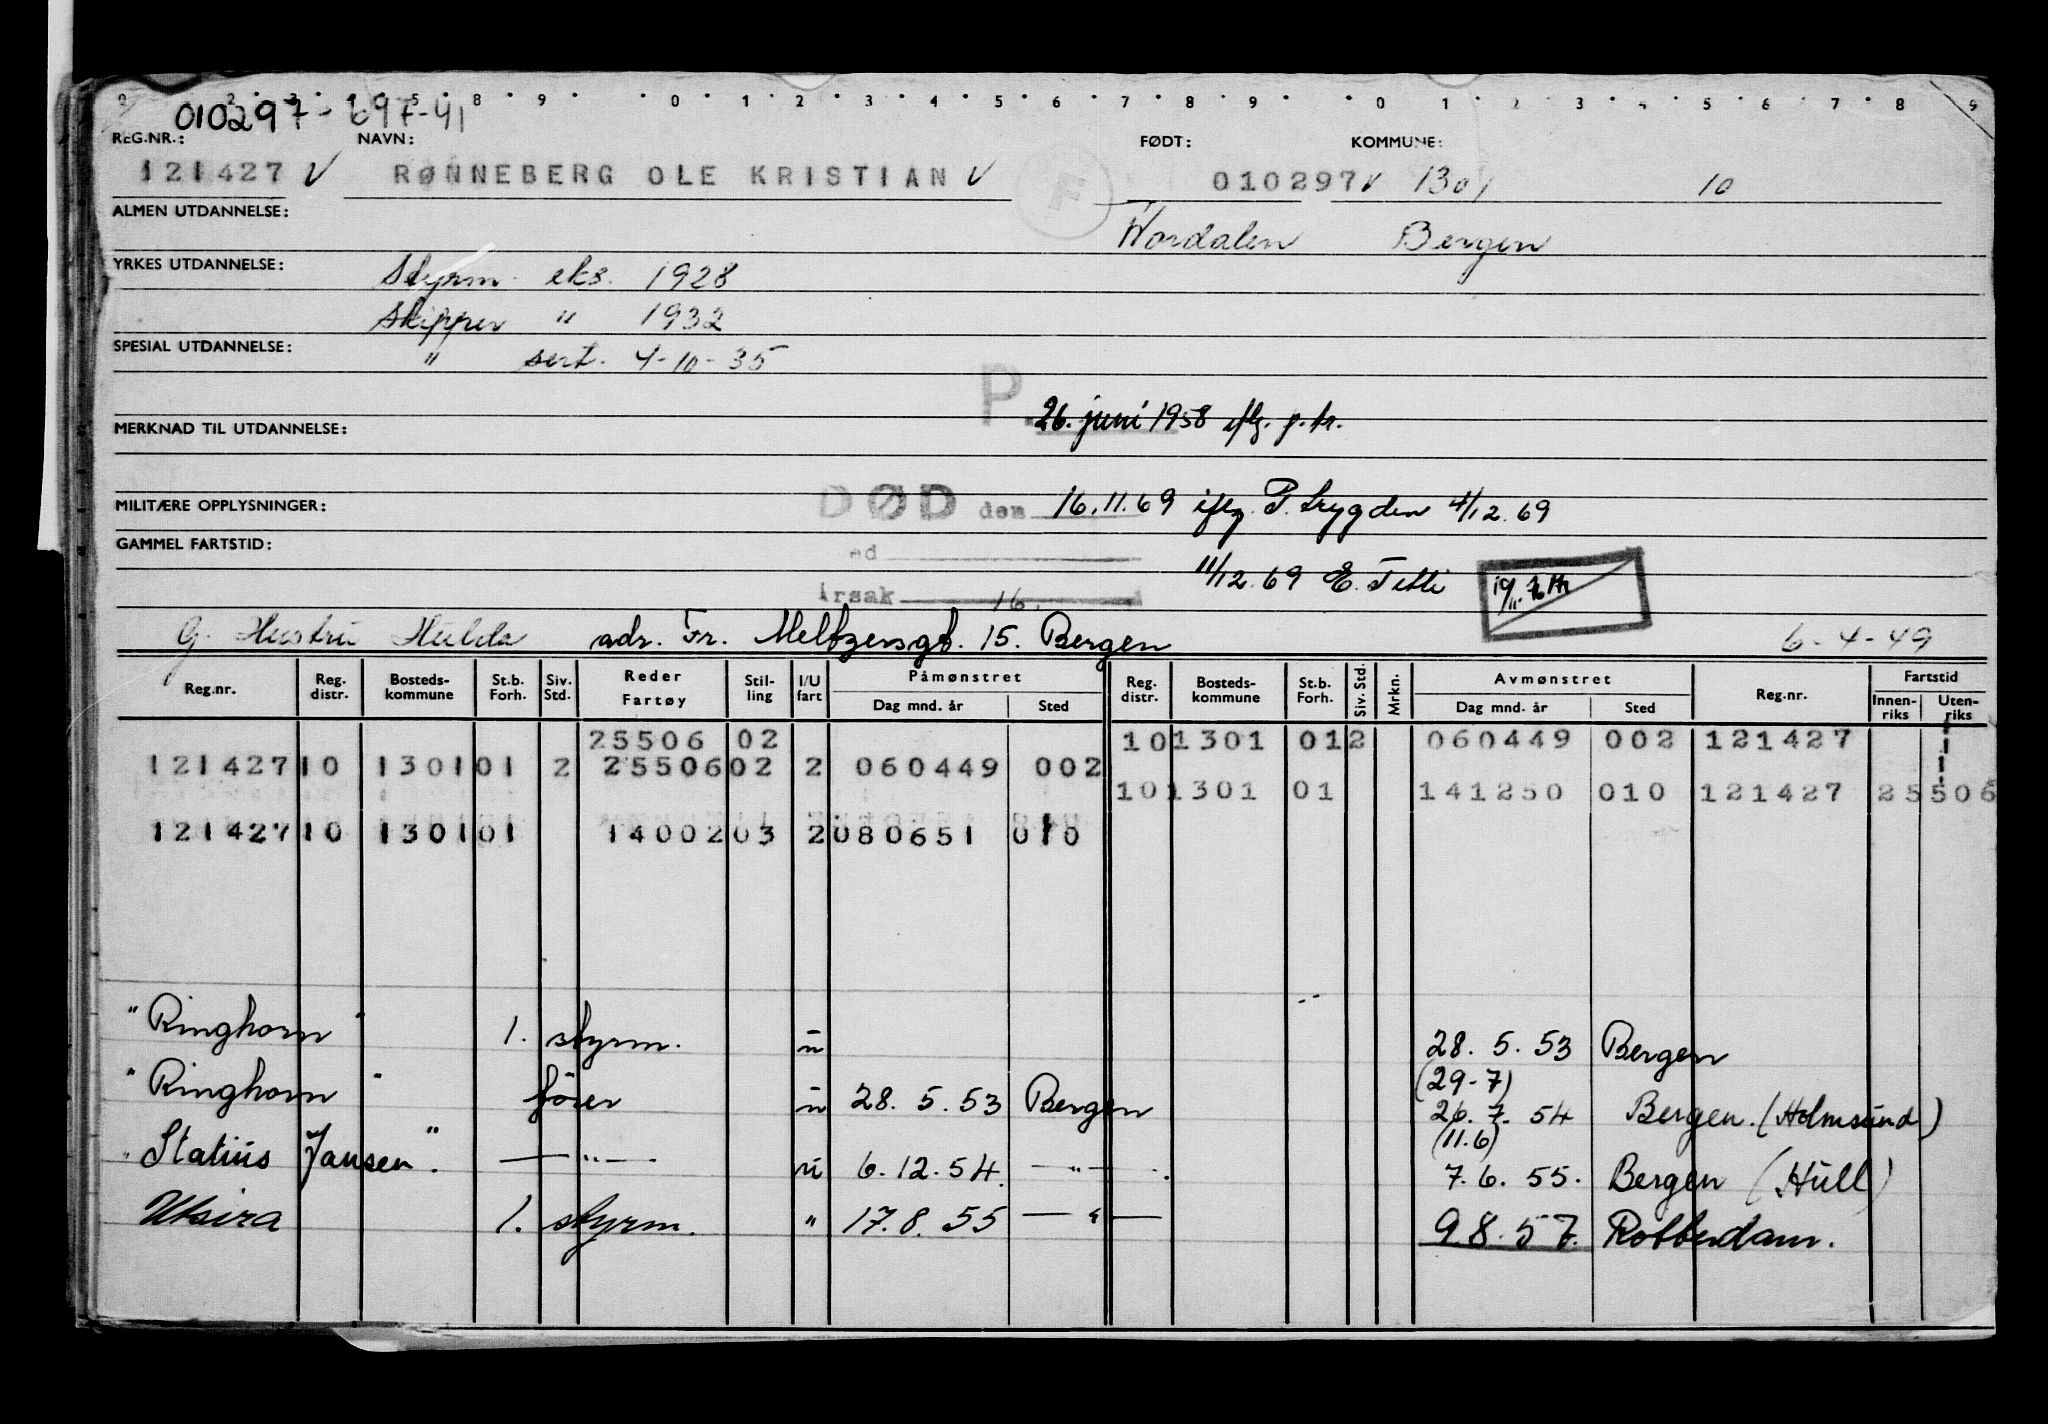 010297-697-41
REG.NR.: NAVN: FØDT: KOMMUNE:
121427 V RØNNEBERG OLE KRISTIAN V F 010297 V 1301 10
ALMEN UTDANNELSE: Bergen
YRKES UTDANNELSE: Styrm. eks. 1928
Skipper " 1932
SPESIAL UTDANNELSE: " sert. 4-10-35
P. 26. juni 1958 iflg. p.k.
MERKNAD TIL UTDANNELSE:
MILITÆRE OPPLYSNINGER: DØD den 16.11.69 iflg. P. trygden 4/12.69
GAMMEL FARTSTID: ed
11/12.69
Årsak 16.
G. Hustru Hulda adr. Fr. Meltzersgt. 15. Bergen 6-4-49
Reg.nr. Reg. distr. Bosteds-kommune St.b. Forh. Siv. Std. Reder Fartøy Stil-ling I/U fart Påmønstret Dag mnd. år Sted Reg. distr. Bosteds-kommune St.b. Forh. Siv. Std. Mrkn. Avmønstret Dag mnd. år Sted Reg.nr. Fartstid Innen-riks Uten-riks
25506 02 10 1301 01 2 060449 002 121427
121427 10 1301 01 2 25506 02 2 060449 002
10 1301 01 141250 010 121427 25506
121427 10 1301 01 14002 03 2 080651 010
"Ringhorn" 1. styrm. u 28. 5. 53 Bergen
(29-7)
"Ringhorn" fører u 28. 5. 53 Bergen 26. 7. 54 Bergen. (Holmsund)
(11.6)
"Statius Jansen". — " — u 6. 12. 54. — " — 7. 6. 55. Bergen (Hull)
Utsira 1. styrm. " 17. 8. 55 — " — 9. 8. 57. Rotterdam.